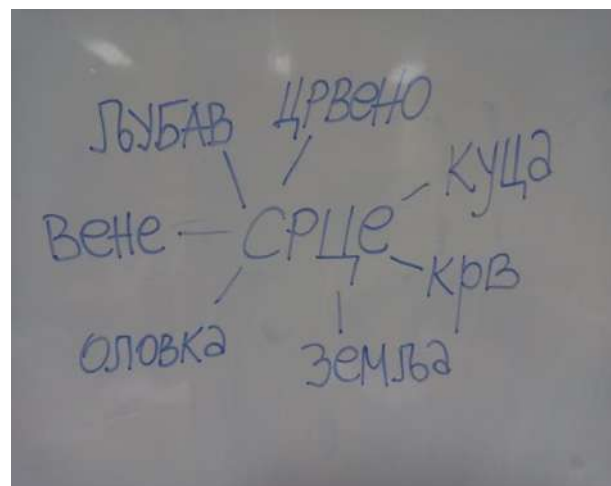 ЉУБАВ
ЦРВЕНО
КУЦА
ВЕНЕ
СРЦЕ
КРВ
ОЛОВКА
ЗЕМЉА